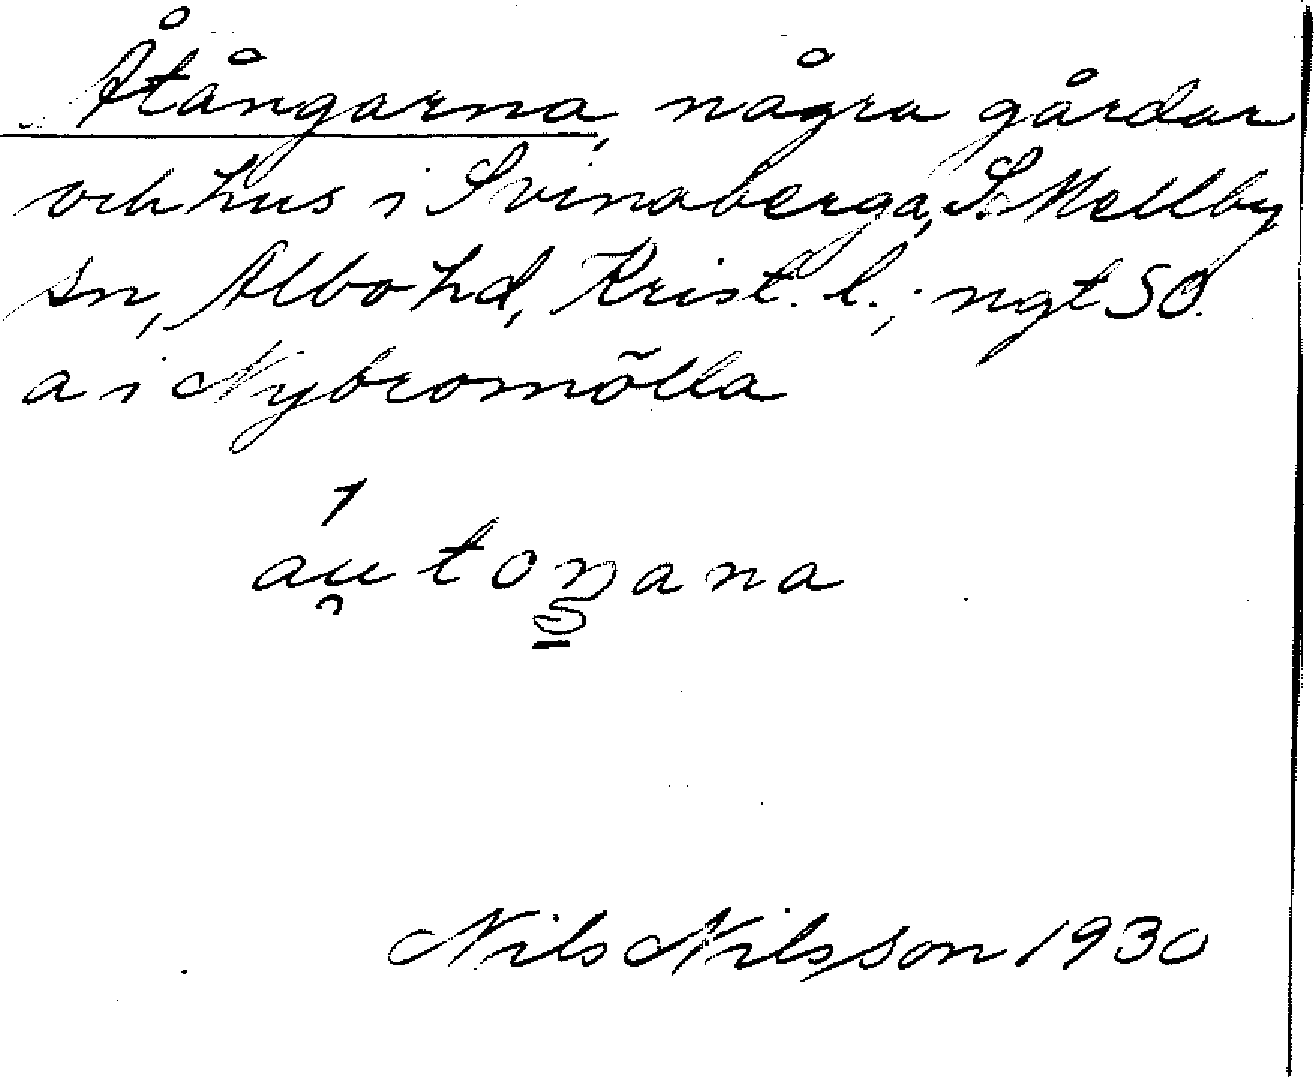 Åtångarna, några gårdar
och hus i Svinaberga, S. Mellby
sn, Albo hd, Krist. l.; ngt SO.
a i Nybromölla
áu̯toŋana
Nils Nilsson 1930